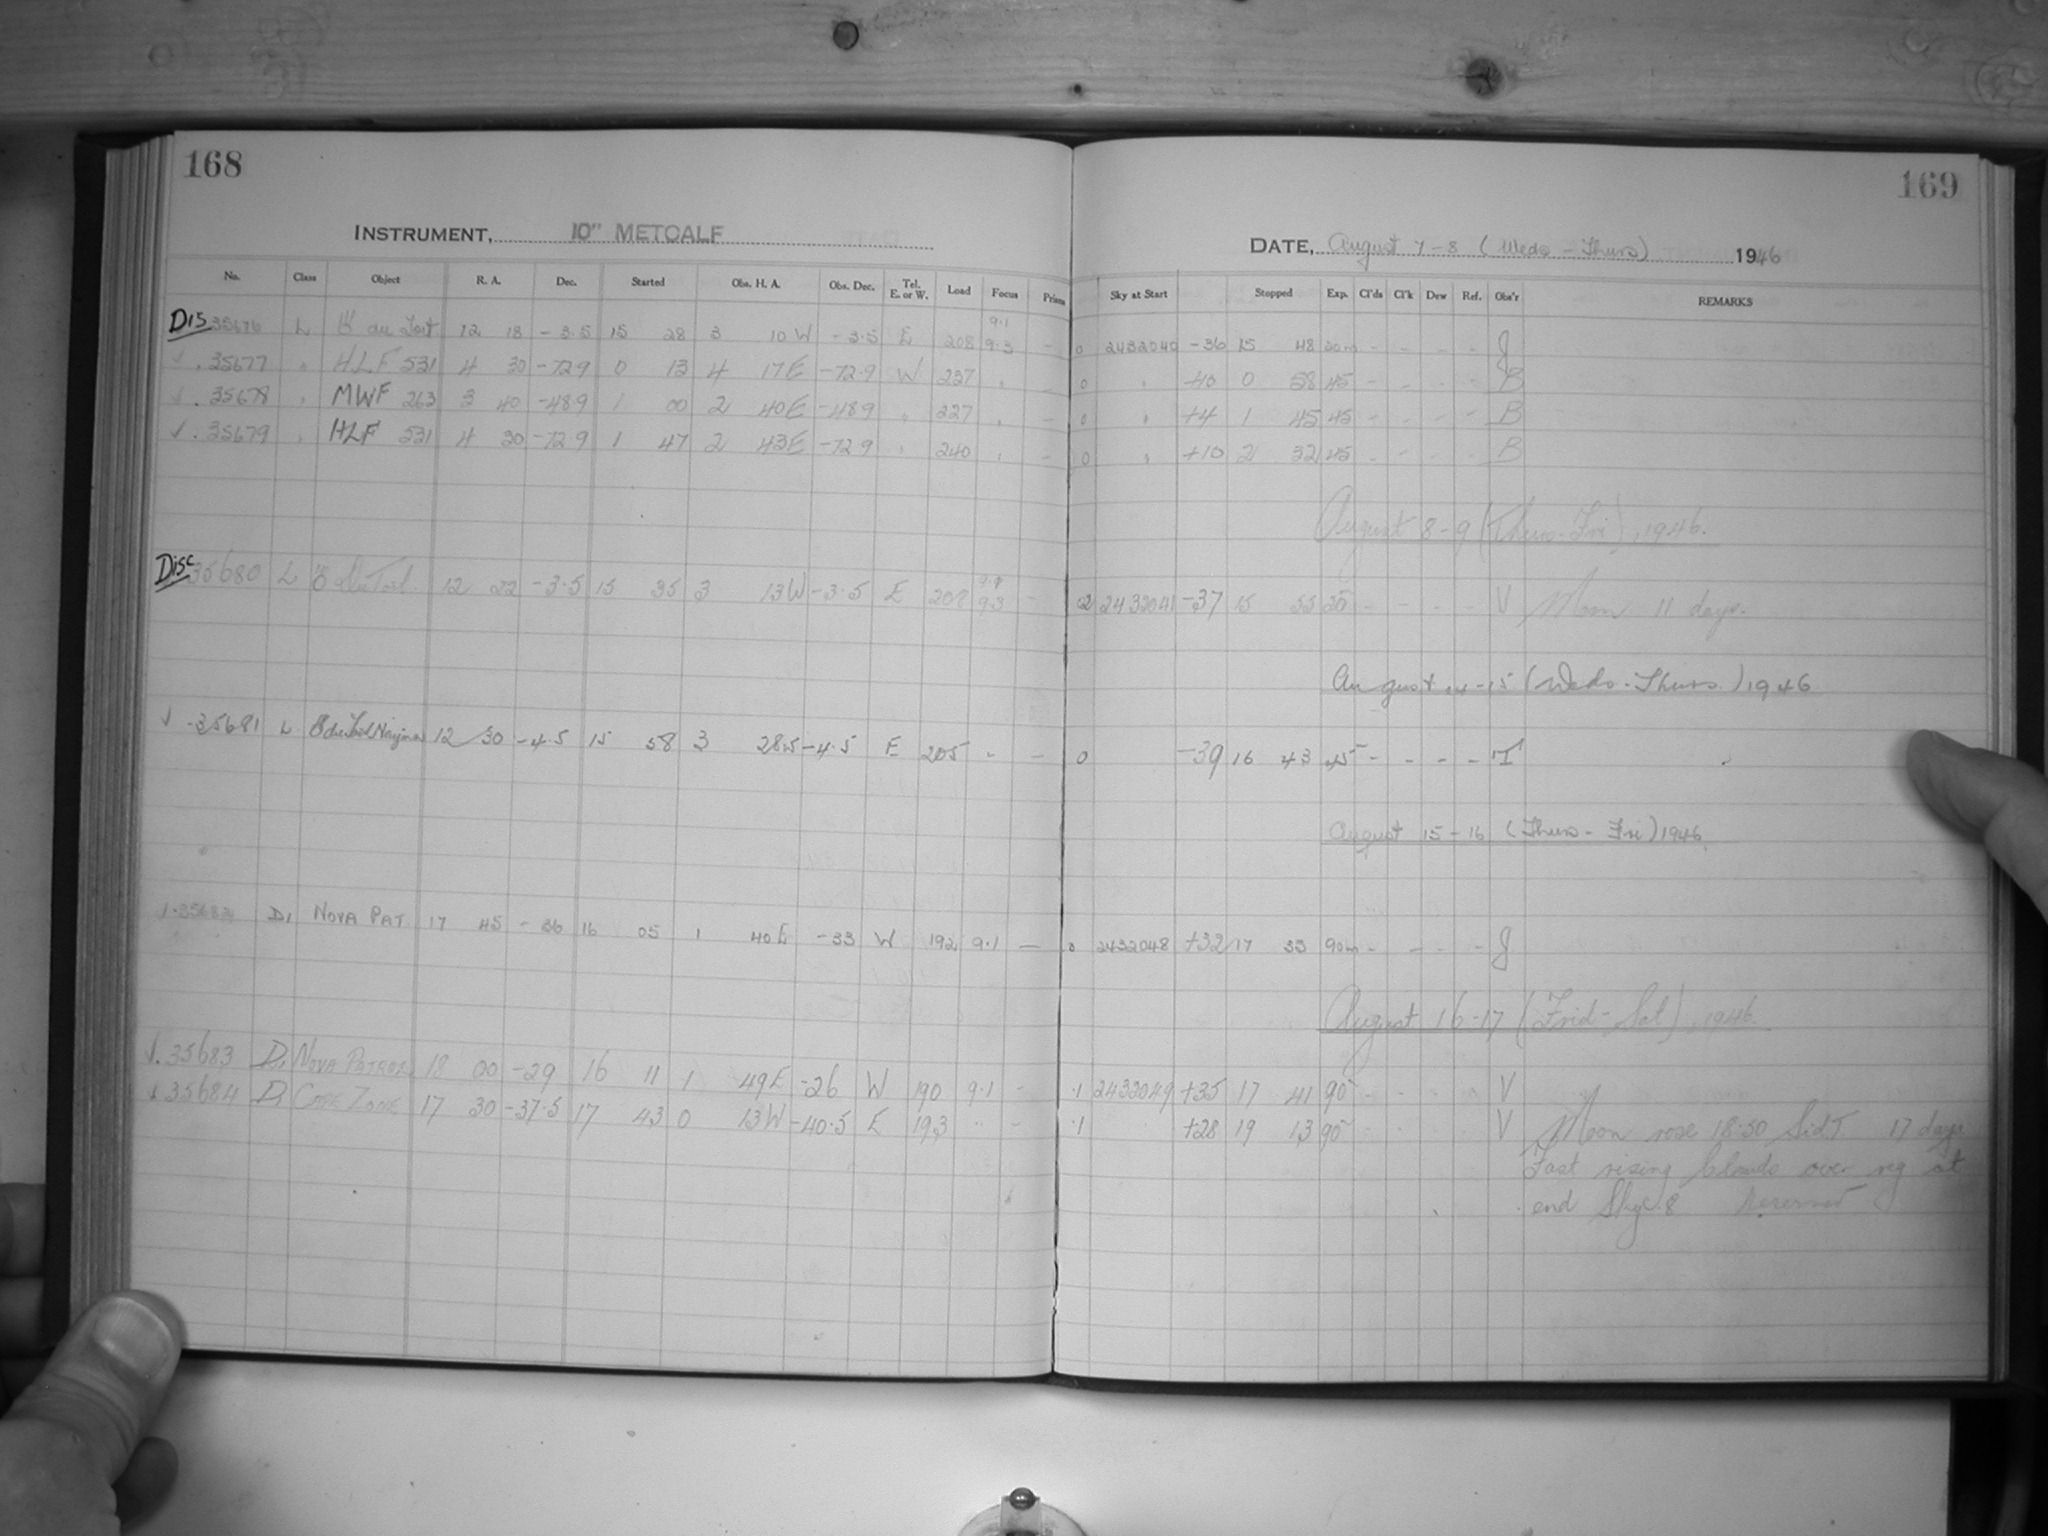 168
169
INSTRUMENT, 10" METCALF
DATE, August 7-8 (Weds - Thurs) 1946
No. Class Object R. A. Dec. Started Obs. H. A. Obs. Dec. Tel. E. or W. Load Focus Prism Sky at Start Stopped Exp. Cl'ds Cl'k Dew Ref. Obs'r REMARKS
Dis 35676 L du Toit 12 18 -3.5 15 28 3 10 W -3.5 E 208 9.1 9.3 - 0 2432040 -36 15 48 20m - - - - J
✓ . 35677 " HLF 531 4 30 -72.9 0 13 4 17E -72.9 W 237 " - 0 " +10 0 58 45 - - - - B
✓ . 35678 " MWF 263 3 40 -48.9 1 00 2 40E -48.9 " 227 " - 0 " +4 1 45 45 - - - - B
✓ . 35679 " HLF 531 4 30 -72.9 1 47 2 43E -72.9 " 240 " - 0 " +10 2 32 45 - - - - B
August 8-9 (Thurs-Fri), 1946.
Disc 35680 L 12 22 -3.5 15 35 3 13W -3.5 E 208 9.3 - .2 2432041 -37 15 55 20 - - - - V Moon 11 days.
August 14-15 (Weds - Thurs) 1946
✓ . 35681 L 12 30 -4.5 15 58 3 28W -4.5 E 205 " - 0 -39 16 43 45 - - - - T
August 15-16 (Thurs - Fri) 1946
D, NOVA PAT. 17 45 -36 16 05 1 40E -33 W 192 9.1 - 0 2432048 +32 17 35 90m - - - - J
August 16-17 (Frid-Sat), 1946.
✓. 35683 D, NOVA PATROL 18 00 -29 16 11 1 49E -26 W 190 9.1 - .1 2432049 +35 17 41 90 - - - - V
✓ 35684 D, CAPE ZONE 17 30 -37.5 17 43 0 13W -40.5 E 193 " - .1 +28 19 13 90 - - - - V Moon rose 18.50 Sid T 17 days
Fast rising clouds over reg at
end Sky .8